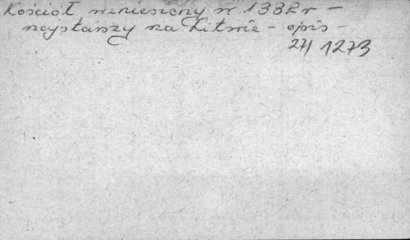 Kościół wzniesiony w 1382 r –
najstarszy na Litwie – opis –
27/1273